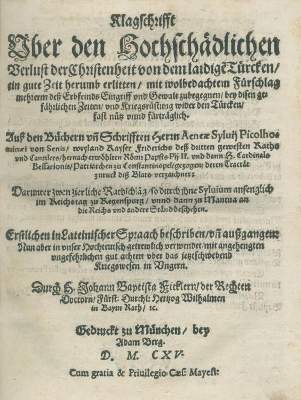 Klagschrifft
Vber den Hochschädlichen
Verlust der Christenheit von dem laidigē Türcken/
ein gute Zeit herumb erlitten/ mit wolbedachtem Fürschlag
mehrerm deß Erbfeinds Eingriff und Gewalt zubegegnen/ bey disen ge-
fährlichen Zeiten/ und Kriegsrüstung wider den Türcken/
fast nutz unnd fürträglich.
Auß den Büchern vñ Schrifften Herrn Aeneæ Syluij Picolho-
minæi von Senis/ weyland Kayser Friderichs deß dritten gewesten Raths
und Cantzlers/ hernach erwöhlten Röm: Papsts Pij II. unnd dann H. Cardinals
Bessarionis/ Patriarchen zu Constantinopel gezogen/ deren Tractät
zuruck diß Blats verzaichnet:
Darunter zween zierliche Rathschläg/ so durch ihne Syluium anfenglich
im Reichstag zu Regenspurg/ unnd dann zu Mantua an
die Reichs und andere Ständ beschehen.
Erstlichen in Lateinischer Spraach beschriben/ vñ außgangen:
Nun aber in unser Hochteutsch getrewlich verwendet/ mit angehengten
ungefehrlichen gut achten über das jetztschwebend
Kriegswesen in Ungern.
Durch H. Johann Baptista Ficklern/ der Rechten
Doctorn/ Fürst: Durchl: Hertzog Wilhalmen
in Bayrn Rath/ ec.
Gedruckt zu München/ bey
Adam Berg.
D. M. CXV.
Cum gratia & Priuilegio Cæs: Mayest: